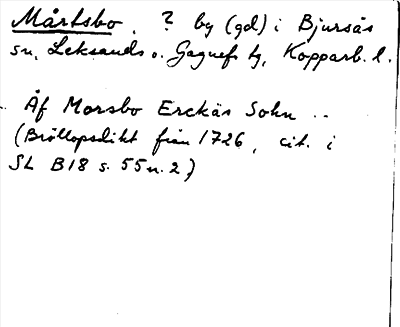 Mårtsbo. ? by (gd) i Bjursås
sn, Leksands o. Gagnefs tg, Kopparb. l.
Åf Morsbo Erckås Sohn ..
(Bröllopsdikt från 1726, cit. i
SL B18 s. 55 n. 2)